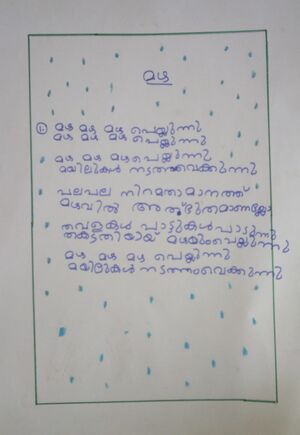 മഴ
① മഴ മഴ മഴ പെയ്യുന്നു
മഴ മഴ മഴ പെയ്യുന്നു
മഴ മഴ മഴ പെയ്യുന്നു
മയിലുകൾ നടത്തംവെക്കുന്നു
പലപല നിറമതാമാനത്ത്
മഴവിൽ അത്ഭുതമാണല്ലോ
പാട്ടുകൾ പാടുന്നു
മഴയുംപെയ്യുന്നു
മഴ മഴ മഴ പെയ്യുന്നു
മയിലുകൾ നടത്തംവെക്കുന്നു